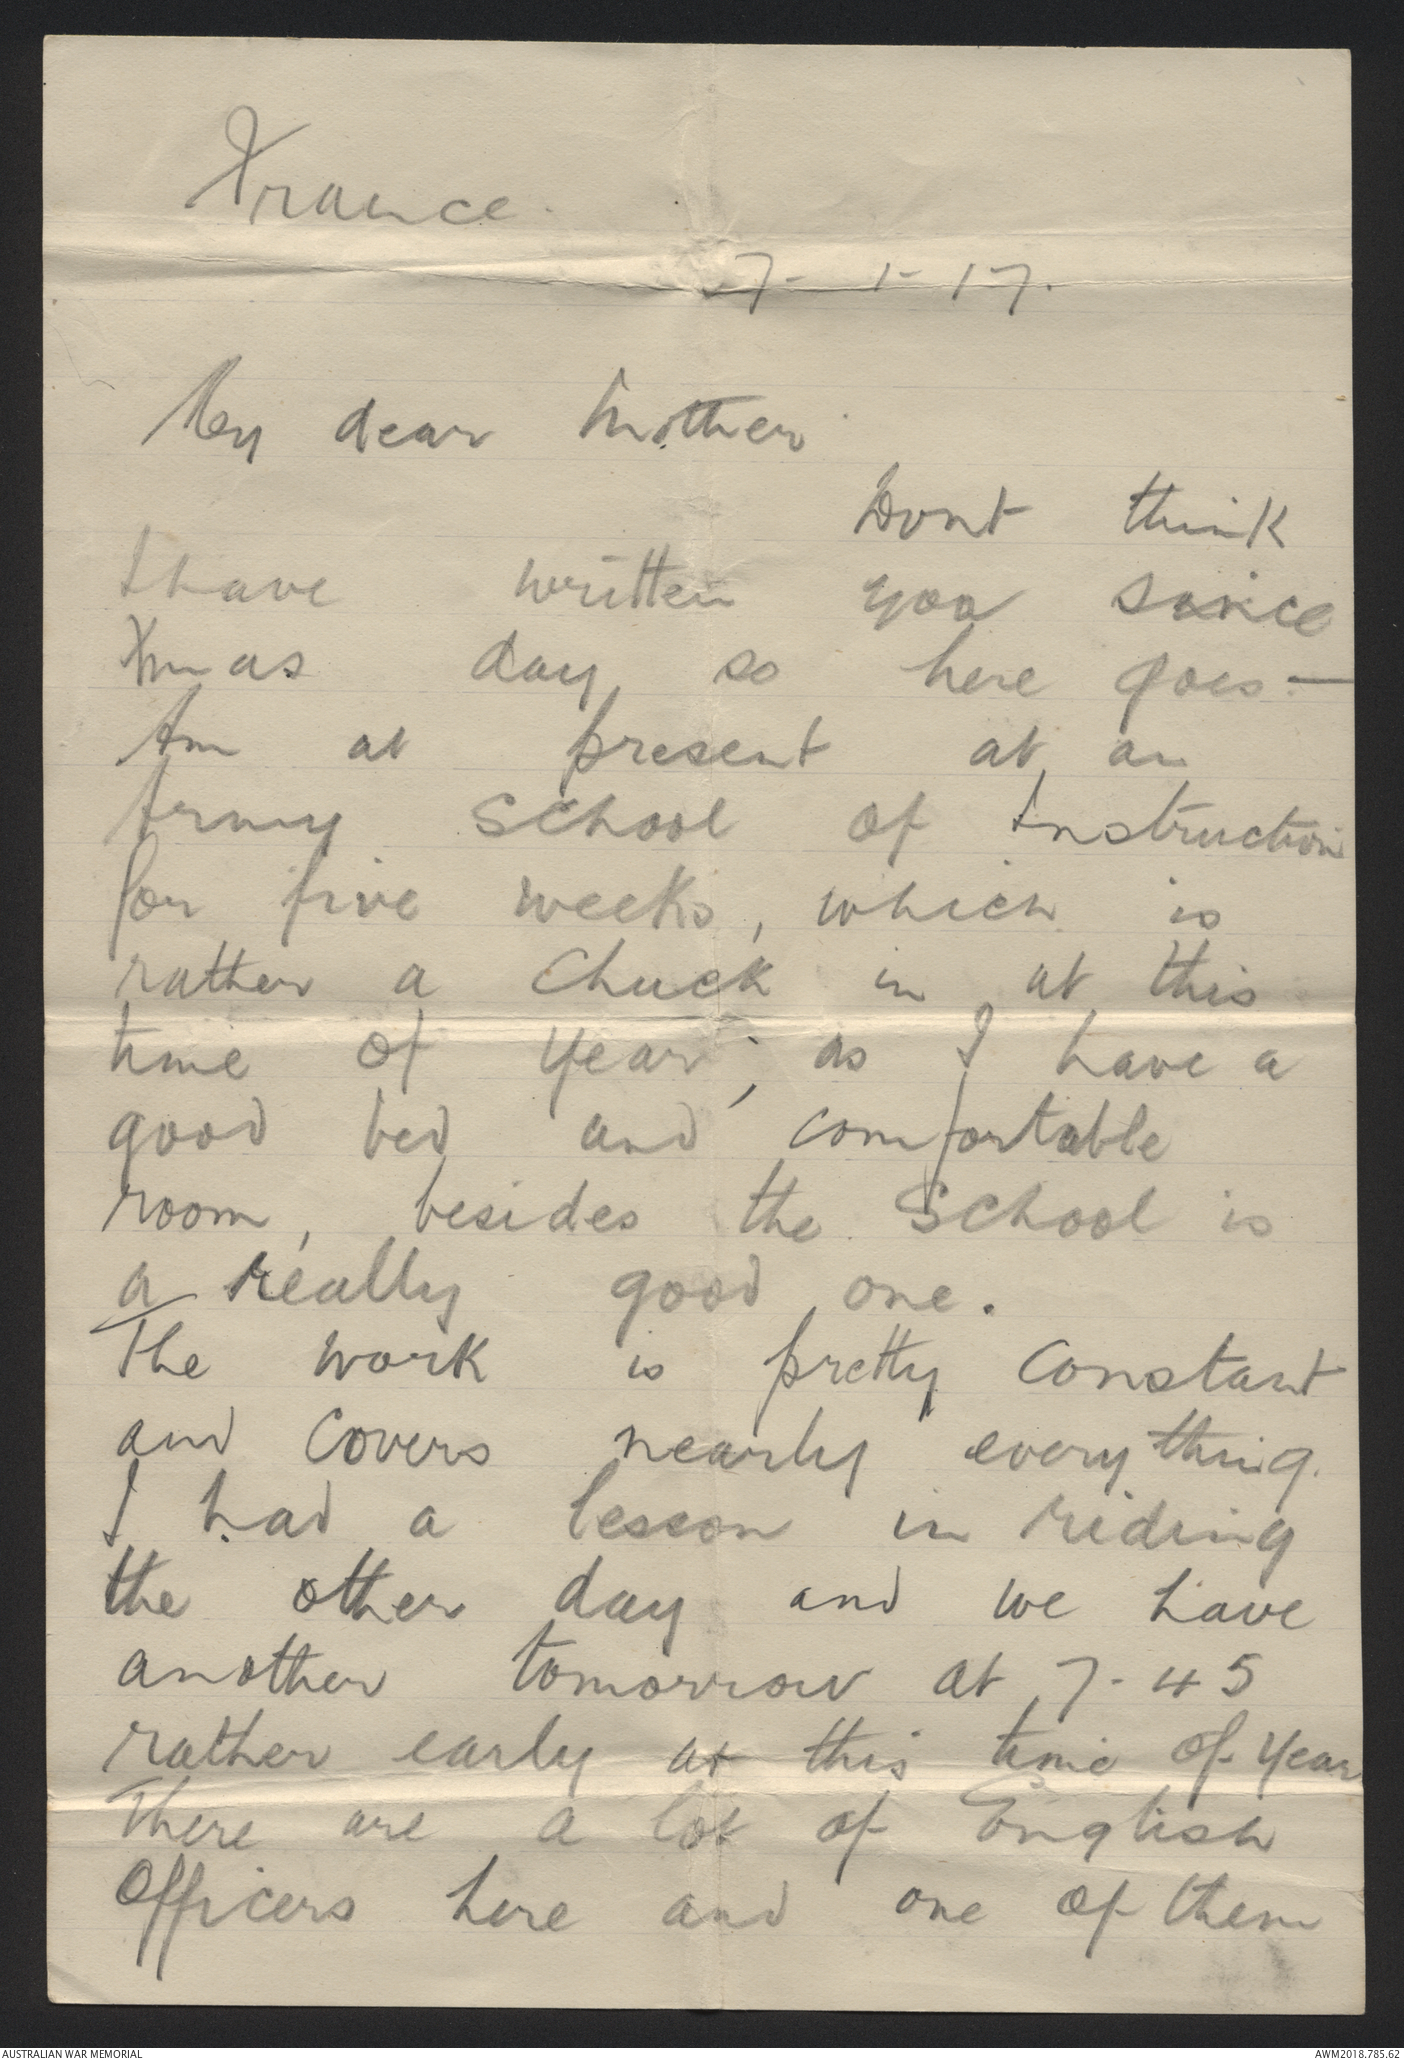 France.
7-1-17.
My dear Mother
Dont think
I have written you since
Xmas day, so here goes:—
Am at present at an
Army School of Instruction
for five weeks, which is
rather a chuck in at this
time of year, as I have a
good bed and comfortable
room, besides the School is
a really good one.
The work is pretty constant
and covers nearly everything.
I had a lesson in riding
the other day and we have
another tomorrow at 7-45
rather early at this time of year
There are a lot of English
Officers here and one of them
AUSTRALIAN WAR MEMORIAL
AWM2018.785.62